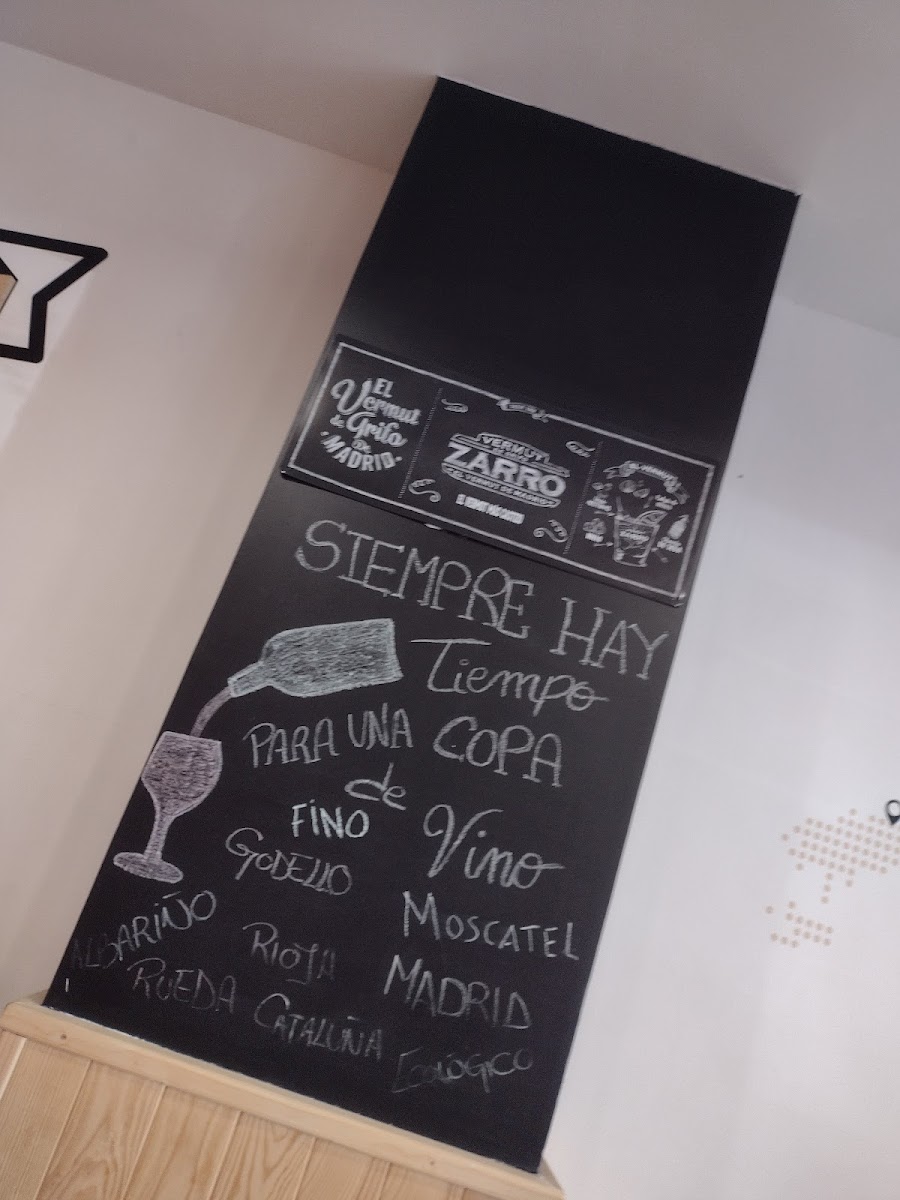 EL
Vermut
de Grifo
DE
MADRID
VERMUT
ZARRO
EL VERMUT DE MADRID
SIEMPRE HAY
Tiempo
PARA UNA COPA
de
Vino
FINO
GODELLO
MOSCATEL
ALBARIÑO
RIOJA
MADRID
RUEDA
CATALUÑA
ECOLÓGICO